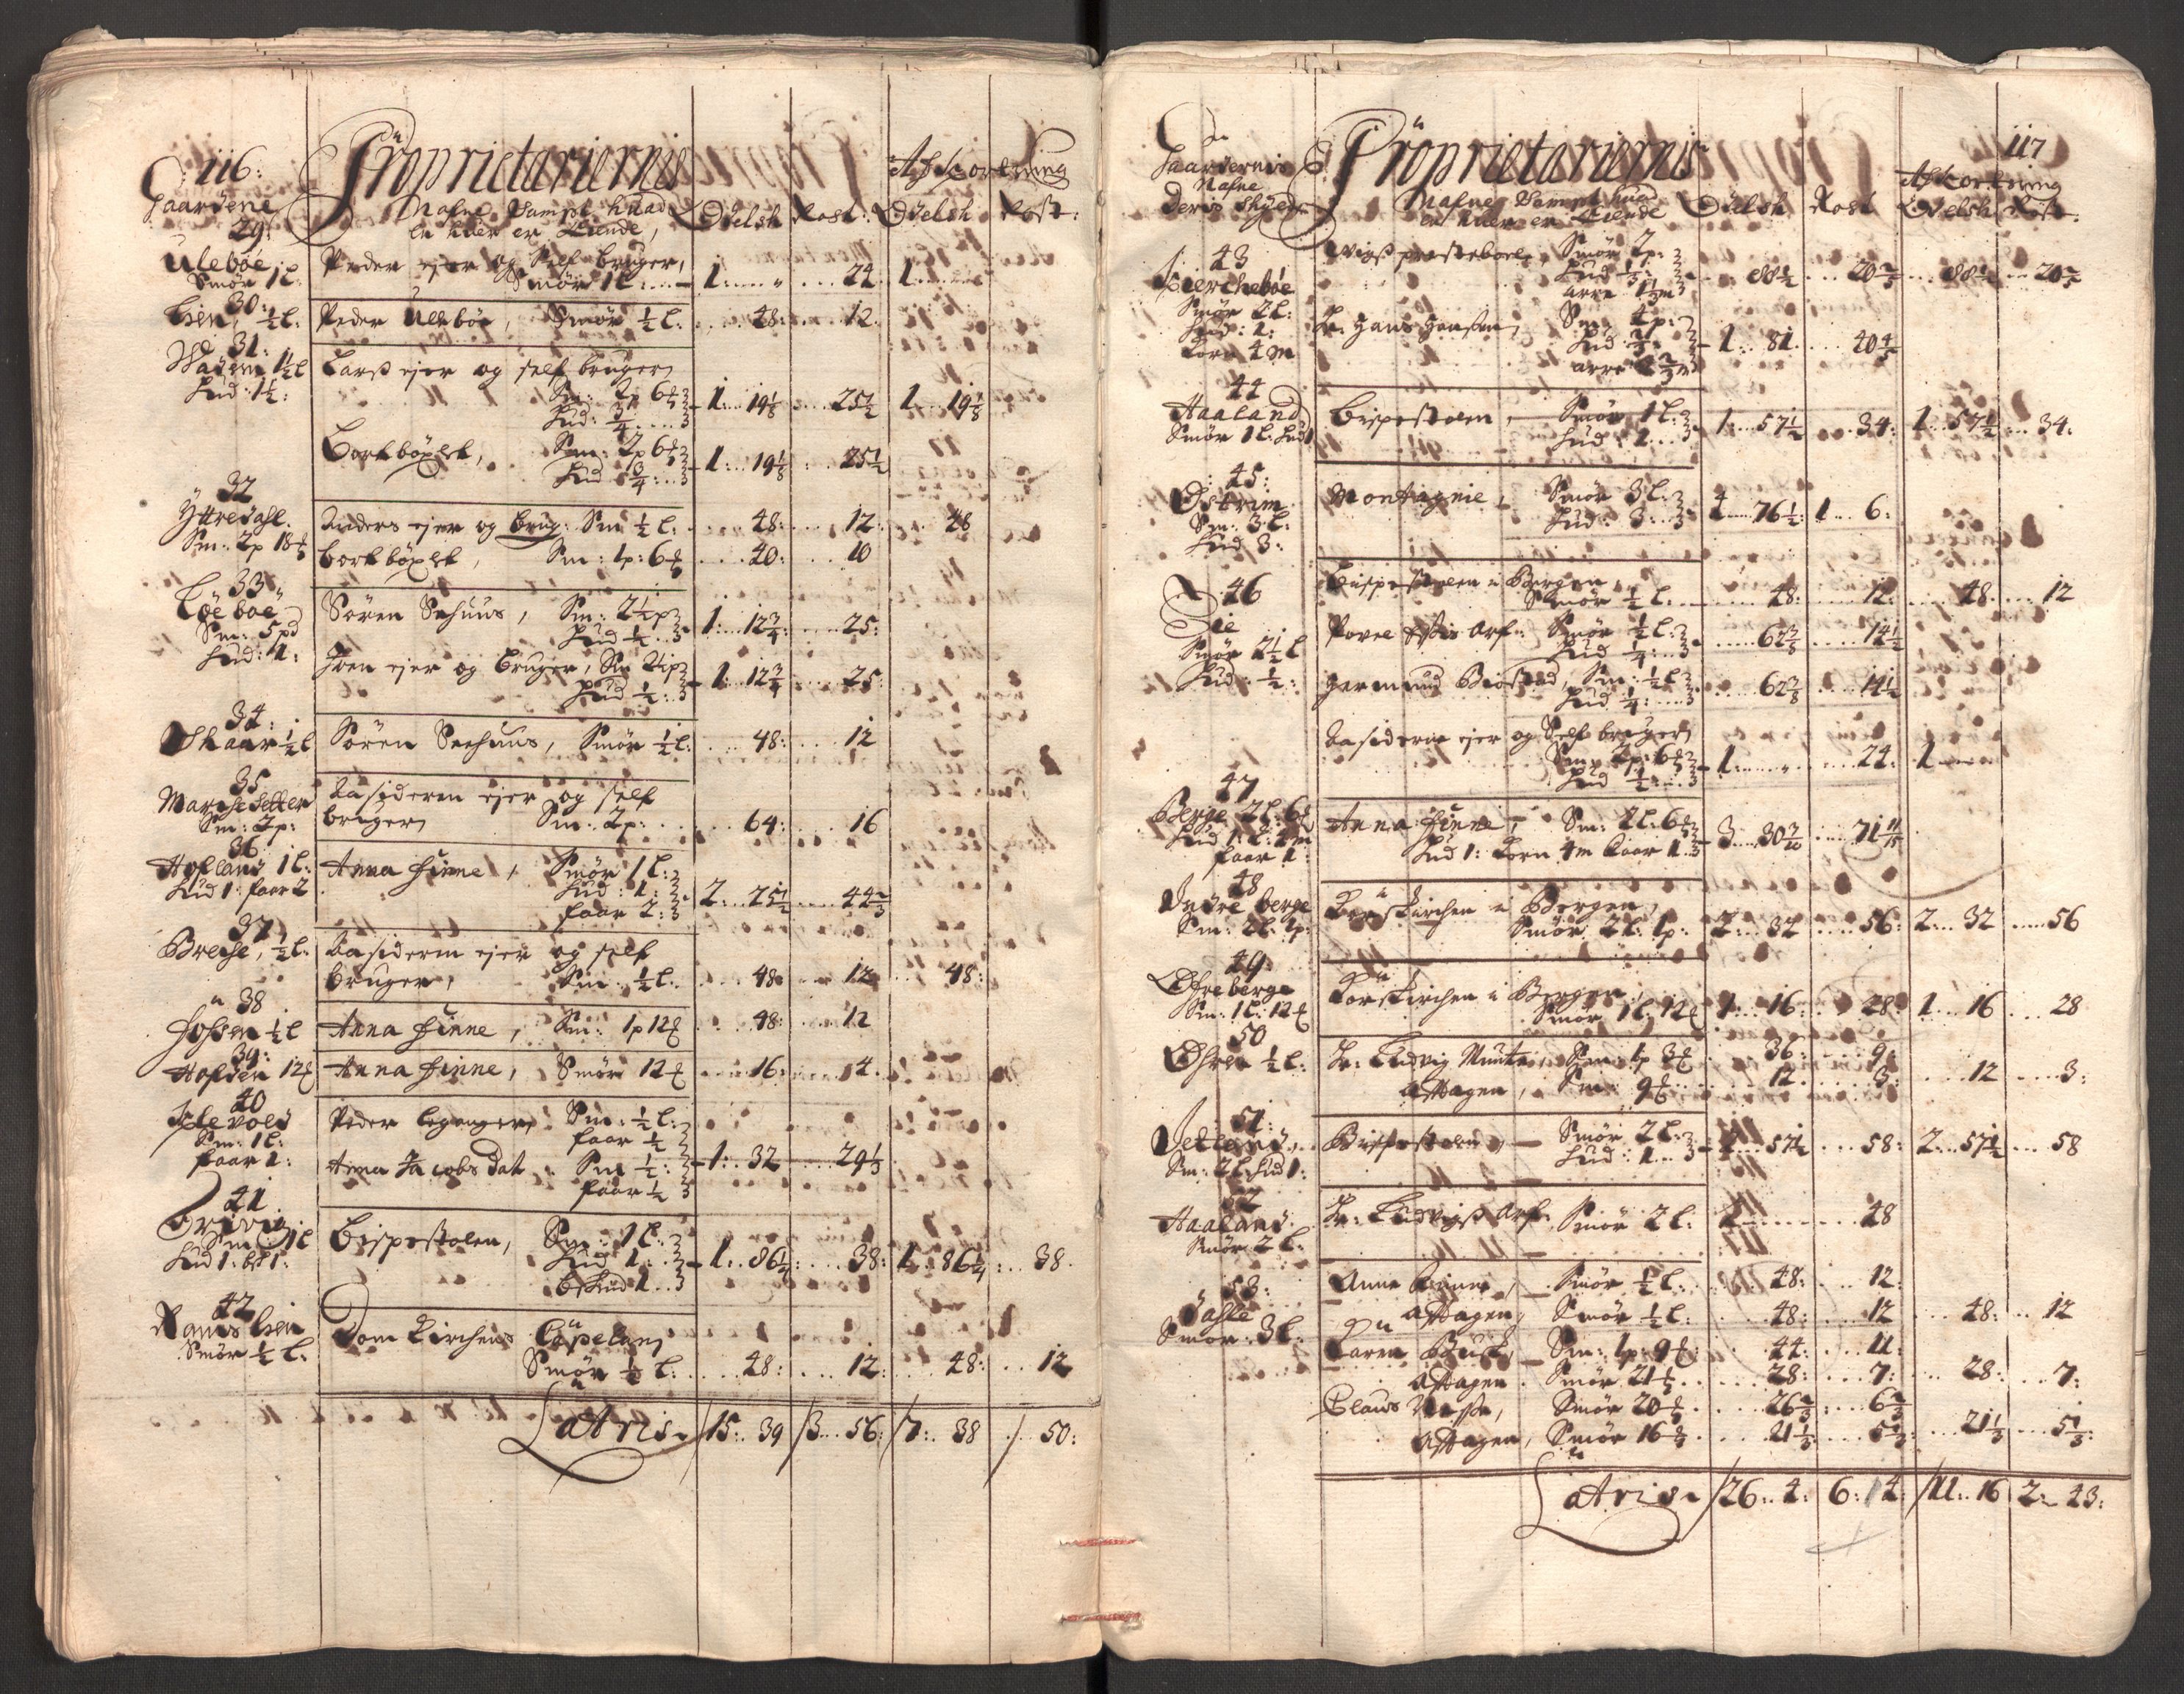 116:
Gaardene
Proprietariernis
Nafne Sampt huad
en huer er Eiende,
Odelsk
Rost:
Afkortning
Odelsk
Rost:
29:
Ulebøe
Smør 1 l:
Peder ejer og Self bruger,
Smør 1 l: 1: " 24 1
30:
Lien, ½ l:
Peder Ulebøe, Smør ½ l: 48: 12
31:
1½ l
Hud: 1½:
Lars ejer og self bruger
Sm: 2p 6
Hud: ¾ 1: 19⅛ 25½ 1 19⅛
Bortbøxlet, Sm: 2p 6
Hud ¾ 1: 19⅛ 25½
32
Yttredahl
Sm: 2p 18
Anders ejer og brug: Sm ½ l: 48: 12: 48
bortbøxlet, Sm: 1p: 6 40: 10
33
Løeboe
Sm: 5pd
Hud: 1:
Søren Sehuus, Sm: 2½p
Hud ½ 1: 12¾: 25:
Iven ejer og bruger, Sm 2½p
Hud ½ 1: 12¾ 25:
34:
Skaar ½ l
Søren Seehuus, Smør ½ l: 48: 12
35
Marchesetter
Sm: 2p:
Aasideren ejer og self
bruger Sm: 2p: 64: 16
36
Hofland 1 l:
Hud 1: faar 2
Anna Finne, Smør 1 l:
Hud: 1:
faar 2: 2: 25½ 44⅔
37
Breche, ½ l:
Aasideren ejer og self
bruger, Sm: ½ l: 48 12 48:
38
½ l
Anna Finne, Sm: 1p 12 48: 12
39:
Hofden 12
Anna Finne, Smør 12 16: 4:
40
Klevold
Sm: 1 l:
faar 1:
Peder Leganger Sm: ½ l:
faar ½
Anna Jacobsdat: Sm ½:
faar ½ 1: 32 29⅓
41
Sm: 1 l
Hud 1:
Bispestolen, Sm: 1 l:
Hud 1:
1 1: 86¼: 38: 1: 86¼: 38.
42
Ramslien
Smør ½ l:
Dom Kirchens Capelan
Smør ½ l: 48: 12: 48: 12
Latris 15: 39 3: 56: 7: 38 50:
117
Gaardernis
Nafne
Deris Skyld
Proprietariernis
Nafne Sampt huad
en huer er Eiende
Odelsk
Rost
Afkortning
Odelsk
Rost:
43
Kierchebøe
Smør 2 l:
Hud: 1:
Korn 4 m
Smør 2p:
Hud ⅓:
1⅓ m 88½ 20⅖ 88½ 20⅖
Hr: Hans Hansen, Sm: 4p:
Hud ⅔:
2⅔ m 1: 81. 40⅘
44
Haaland
Smør 1 l: hud 1
Bispestolen, Smør 1 l:
Hud: 1 1: 57½ 34: 1: 57½ 34:
45:
Østrim
Sm: 3 l:
Hud 3:
Montagnie, Smør 3 l:
Hud: 3 4 76½: 1 6:
46
Smør 2½ l
Hud: ½:
Bispestolen i Bergen,
Smør ½ l: 48: 12: 48: 12
Povel Arf: Smør ½ l:
Hud ¼: 62⅞ 14½
Germund Sm: ½ l:
Hud ¼: 62⅞ 14½
Aasiderne ejer og Self bruger
Sm: 2p: 6
Hud ½ 1: " 24: 1
47
Berge 2 l: 6
faar 1:
Anna Finne, Sm: 2 l: 6
Hud 1: Korn 4m Faar 1 3 71
48
Indre berge
Sm: 2 l: 1p:
Korskirchen i Bergen,
Smør 2 l: 1p: 2 32 56: 2 32 56
49:
Øfreberge
Sm: 1 l: 12
Korskirchen i Bergen,
Smør 1 l: 12 1: 16: 28: 1 16 28
50
Øhren ½ l:
Hr: Ludvig Munte, Sm: 1p 3 36: 9:
Afftagen, Sm: 9 12 3: 12 3:
51:
Jetland,
Sm: 2 l: Hud 1:
Bispestolen, Smør 2 l:
Hud: 1 2 57½ 58: 2: 57½ 58
52
Haaland:
Smør 2 l:
Hr: Ludvigs Arf: Smør 2 l: 2 48
53:
Dahle
Smør: 3 l:
Anna Finne, Smør ½ l: 48: 12:
Afftagen, Smør ½ l: 48: 12 48: 12
Karen Sm: 1p: 9 44: 11:
Afftagen Smør 21 28: 7: 28: 7:
Claus Smør 20 26⅔: 6⅔
Afftagen, Smør 16 21⅓ 5⅓ 21⅓ 5⅓:
Latris 26: 4: 6: 14: 11: 16 2: 43: